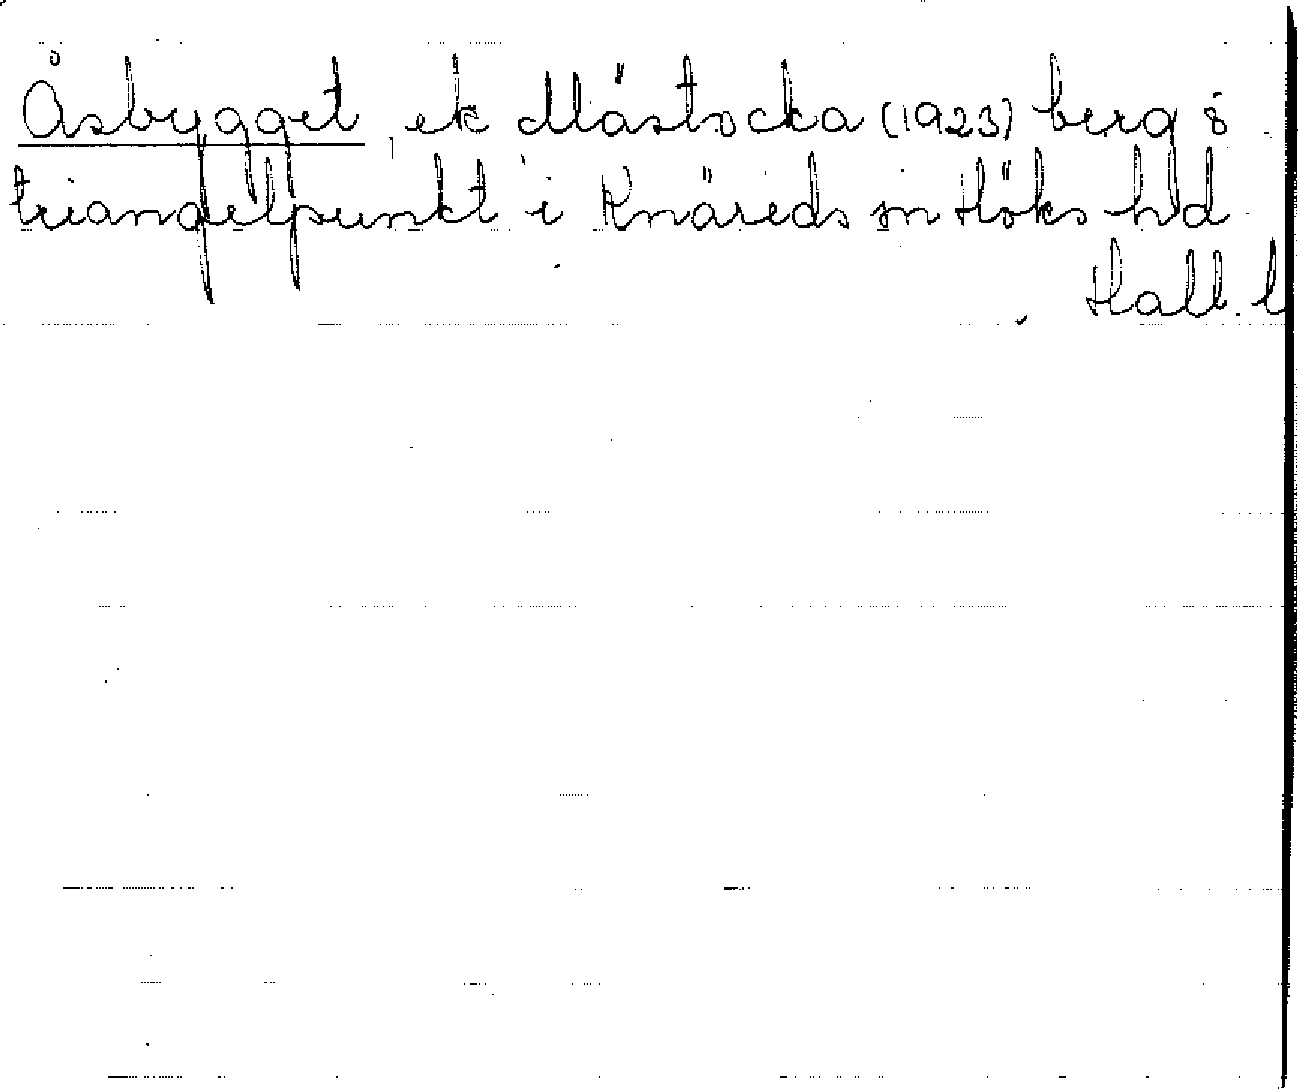 Åsbygget ek Mästocka (1923) berg &
triangelpunkt i Knäreds sn Höks hd
Hall. l